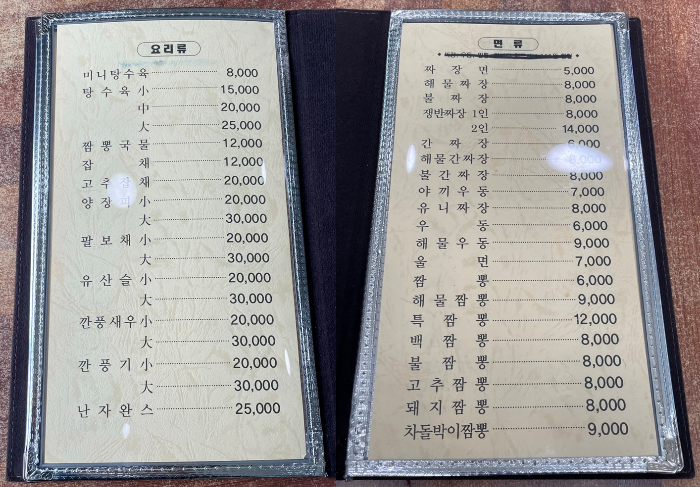 요리류
미니탕수육 8,000
탕수육 小 15,000
中 20,000
大 25,000
짬뽕국물 12,000
잡채 12,000
고추잡채 20,000
양장피 小 20,000
大 30,000
팔보채 小 20,000
大 30,000
유산슬 小 20,000
大 30,000
깐풍새우 小 20,000
大 30,000
깐풍기 小 20,000
大 30,000
난자완스 25,000
면류
짜장면 5,000
해물짜장 8,000
불짜장 8,000
쟁반짜장 1인 8,000
2인 14,000
간짜장 6,000
해물간짜장 8,000
불간짜장 8,000
야끼우동 7,000
유니짜장 8,000
우동 6,000
해물우동 9,000
울면 7,000
짬뽕 6,000
해물짬뽕 9,000
특짬뽕 12,000
백짬뽕 8,000
불짬뽕 8,000
고추짬뽕 8,000
돼지짬뽕 8,000
차돌박이짬뽕 9,000